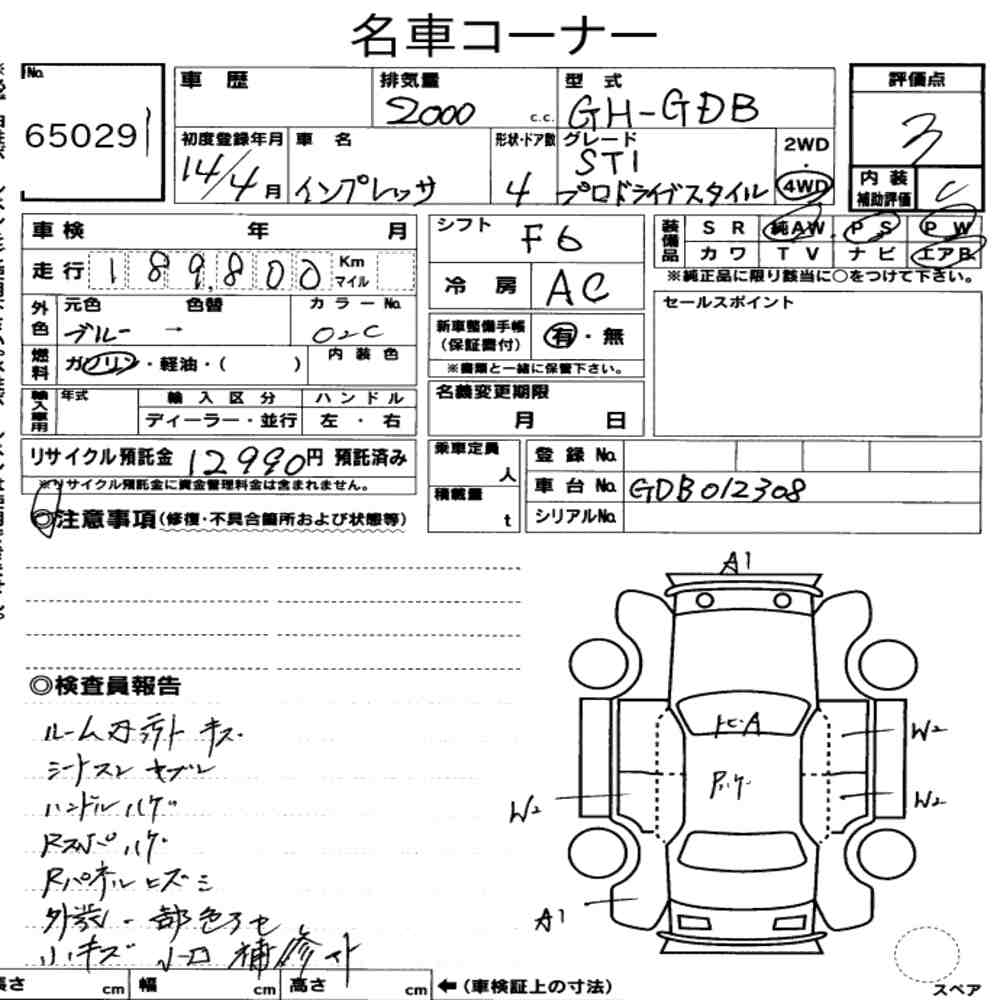 名車コーナー
No.
65029
車歴
排気量
2000 c.c.
型式
GH-GDB
評価点
3
初度登録年月
14/4月
車名
インプレッサ
形状・ドア数
4
グレード
STI
プロドライブスタイル
2WD
・
4WD
内装
補助評価
C
車検 年 月
走行 189,800 Km
マイル
外色
元色 色替 カラーNo.
ブルー → 02C
燃料
ガソリン・軽油・( )
内装色
輸入車用
年式
輸入区分
ディーラー・並行
ハンドル
左・右
シフト
F6
冷房
AC
新車整備手帳
(保証書付)
有・無
※書類と一緒に保管下さい。
名義変更期限
月 日
装備品
SR 純AW PS PW
カワ TV ナビ エアB
※純正品に限り該当に○をつけて下さい。
セールスポイント
リサイクル預託金 12990円 預託済み
※リサイクル預託金に資金管理料金は含まれません。
乗車定員
人
積載量
t
登録No.
車台No. GDB012308
シリアルNo.
◎注意事項(修復・不具合箇所および状態等)
◎検査員報告
ルーム内 キズ
シートスレ ヤブレ
ハンドルハゲ
Rスポハゲ
Rパネルヒズミ
外装一部色アセ
小キズ 凹 補修
A1
W2
W2
W2
A1
長さ cm 幅 cm 高さ cm ←(車検証上の寸法)
スペア